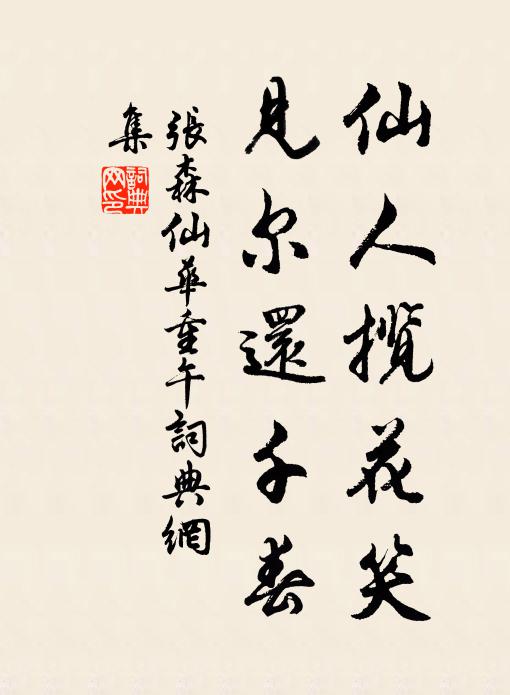 仙人攬花笑
見尔還千春
張森仙華重午詞典網
集
詞典網印